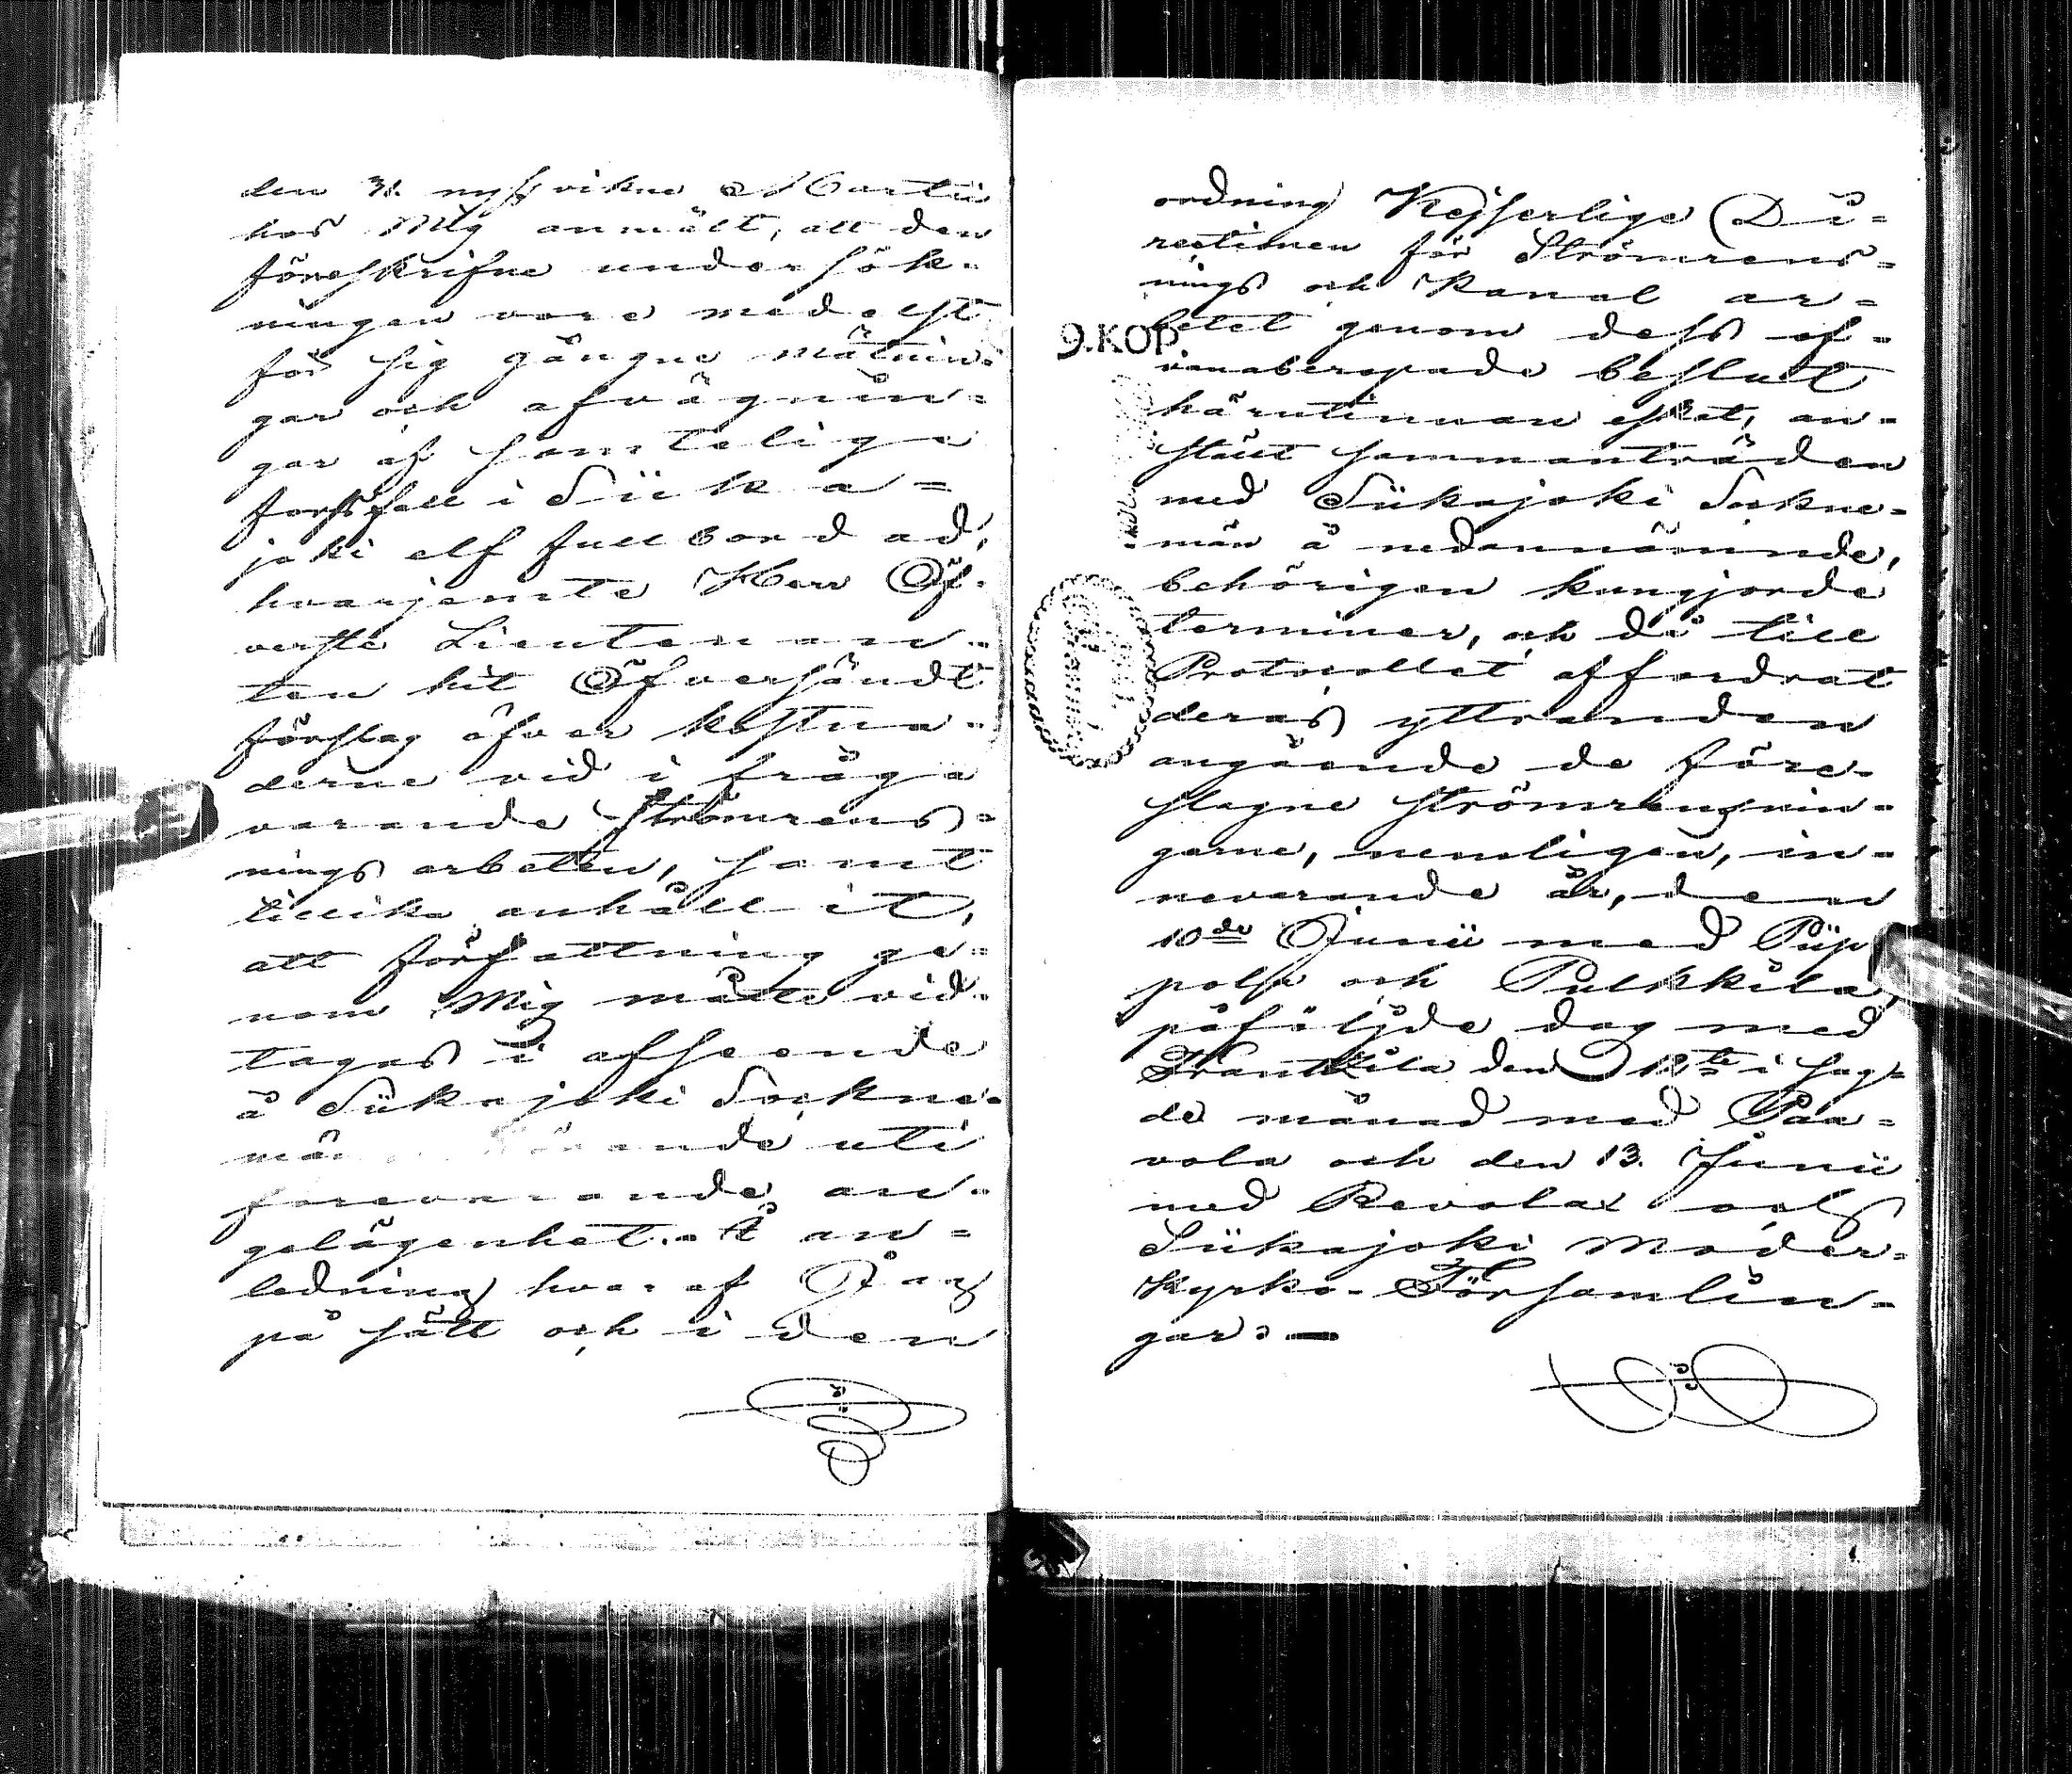 den 31. nyssvikne Martii
hos Mig anmält, att den
föreskrifne undersök-
ningen vore medelst
för sig gångne mätnin-
gar och afvägnin-
gar af samtelige
forssfall i Siika-
joki elf fullbordad,
hvarjemte Herr Öf-
verste Lieutenan-
ten hit Öfversändt
förslag öfver kostna-
derne vid i fråga
varande Strömrens-
nings arbeten, samt
tillika anhållit,
att författning ge-
nom Mig måtte vid-
tagas i afseende
å Siikajoki Sockne-
män hörande uti
förevarande an-
gelägenhet. Å an-
ledning hvaraf Jag
på sätt och i den
ordning Kejserlige Di-
rectionen för Strömrens-
nings och Kanal ar-
betet genom dess of-
vanaberopade beslut
härutinnan eskat, an-
stält sammanträden
med Siikajoki Sockne-
män å nedannämnde,
behörigen kungjorde
terminer, och då till
Protocollet affordrat
deras yttranden
angående de före-
slagne strömrensnin-
garne, nemligen, in-
nevarande år, den
10de Junii med Piip
pola och Pulkkila,
påföljde dag med
Frantzila den 12te i sag-
de månad med Paa-
vola och den 13. Junii
med Revolax och
Siikajoki Moder-
Kyrko-Församlin-
gar. —
9.KOP